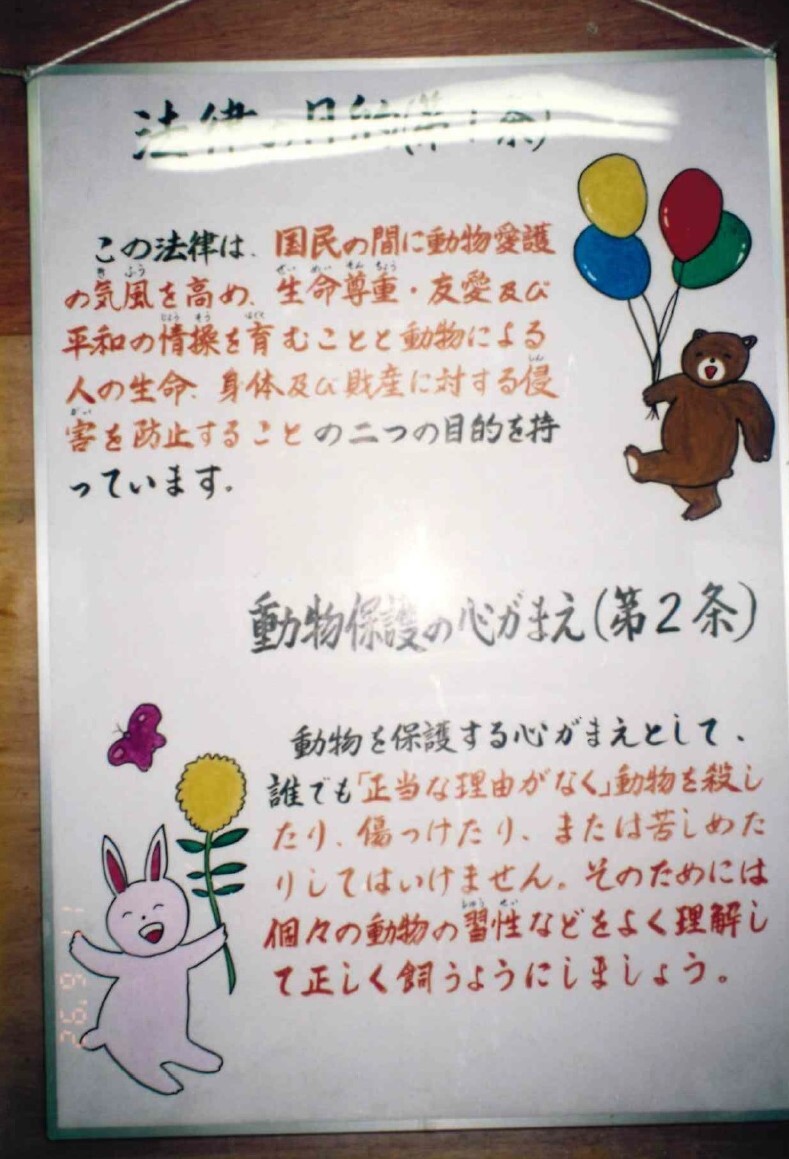 法律の目的(第1条)
この法律は、国民の間に動物愛護
の気風を高め、生命尊重・友愛及び
平和の情操を育むことと動物による
人の生命、身体及び財産に対する侵
害を防止することの二つの目的を持
っています。
動物保護の心がまえ(第2条)
動物を保護する心がまえとして、
誰でも「正当な理由がなく」動物を殺し
たり、傷つけたり、または苦しめた
りしてはいけません。そのためには
個々の動物の習性などをよく理解し
て正しく飼うようにしましょう。